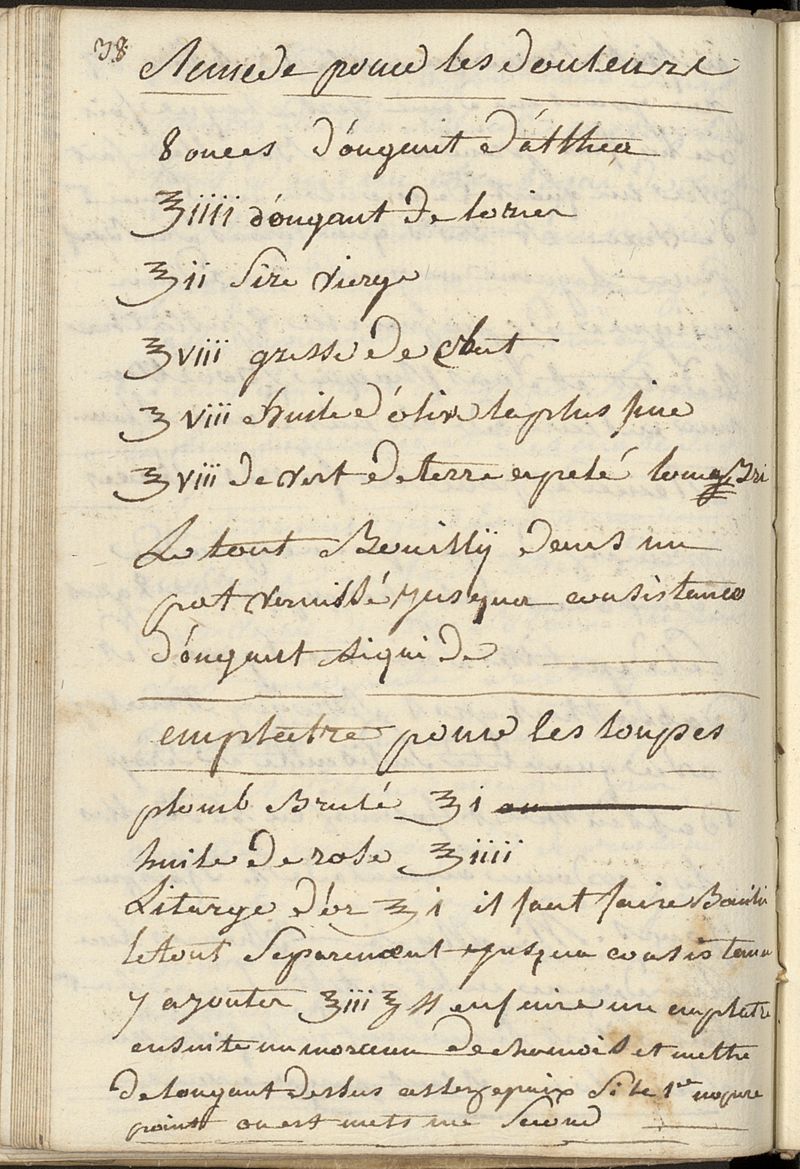 38
Remede pour les douleurs
8 onces d'ongant d'althea
℥iiii d'ongant de lorier
℥ii Sire vierge
℥viii gresse de chat
℥viii huile d'olive la plus fine
℥viii de vert de terre apelé
Le tout Bouilly dans un
pot vernissé jusqua consistance
d'ongant liquide
emplatre pour les loupes
plomb Brulé ℥i
huile de rose ℥iiii
Litarge d'or ℥i il faut faire Bouilir
letout Separement jusqua consistance
y ajouter ℥iii ℥ss enfaire un emplatre
ensuite un morceau de chamois et mettre
de longant dessus assez epaix Si le 1er nopere
point on est mets un Second